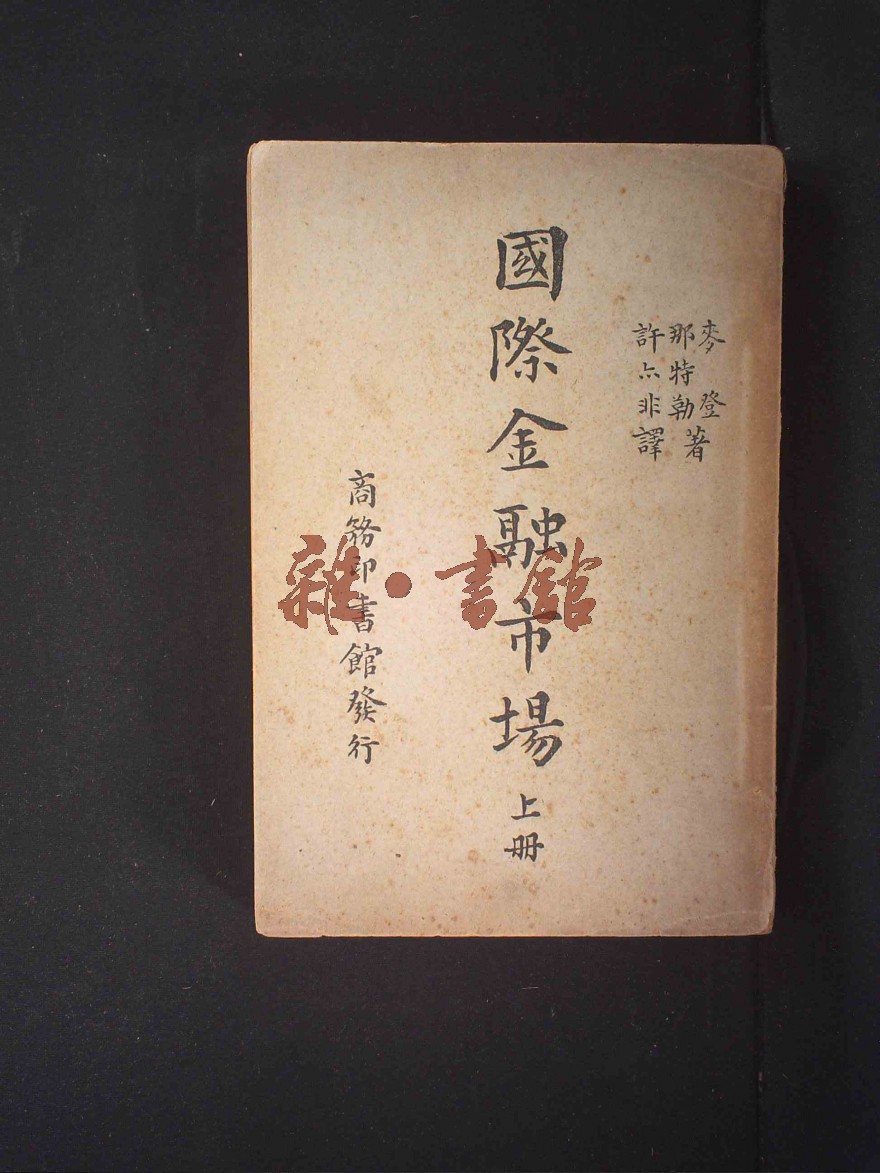 麥登
那特勒著
許亦非譯
國際金融市場 上册
商務印書館發行
雜·書館